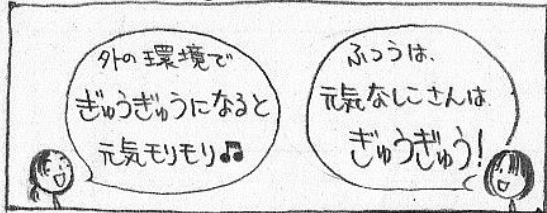 ふつうは、
元気なしこさんは
ぎゅうぎゅう!
外の環境で
ぎゅうぎゅうになると
元気モリモリ♫